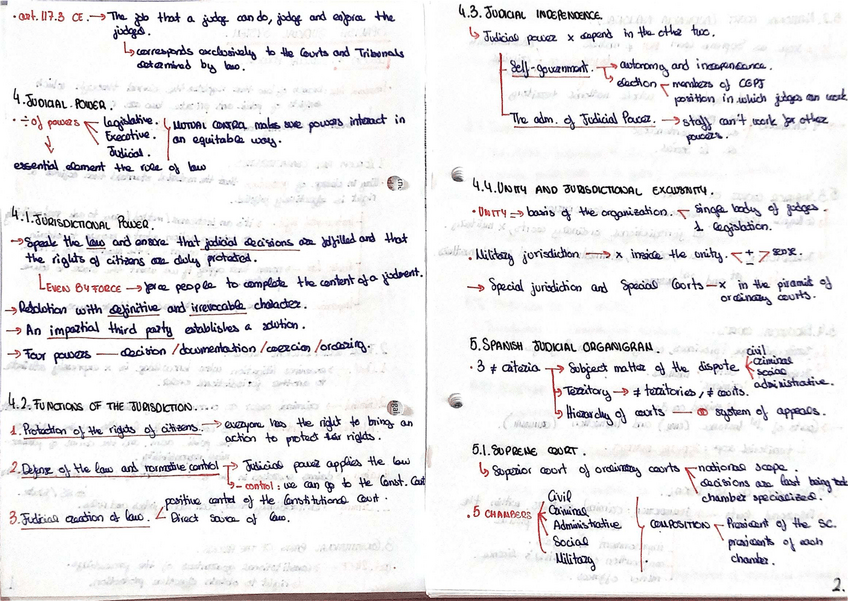 • art. 117.3 CE. → The job that a judge can do, judge and enforce the
judged.
↳ corresponds exclusively to the Courts and Tribunals
determined by law.
4. JUDICIAL POWER.
• ÷ of powers Legislative. MUTUAL CONTROL makes sure powers interact in
Executive. an equitable way.
Judicial.
essential element the role of law
4.1. JURISDICTIONAL POWER.
→ Speak the law and ensure that judicial decisions are fulfilled and that
the rights of citizens are duly protected.
↳ EVEN BY FORCE → force people to complete the content of a judgment.
→ Resolution with definitive and irrevocable character.
→ An impartial third party establishes a solution.
→ Four powers — decision / documentation / coercion / ordering.
4.2. FUNCTIONS OF THE JURISDICTION.
1. Protection of the rights of citizens. → everyone has the right to bring an
action to protect their rights.
2. Defense of the law and normative control → Judicial power applies the law
↳ - control: we can go to the Const. Court
positive control of the Constitutional Court.
3. Judicial creation of law. Direct source of law.
4.3. JUDICIAL INDEPENDENCE.
↳ Judicial power x depend in the other two.
Self-government. → autonomy and independence.
→ election members of CGPJ
position in which judges can work
The adm. of Judicial Power. → staff can't work for other
powers.
4.4. UNITY AND JURSDICTIONAL EXCLUSIVITY.
• UNITY ⇒ basis of the organization. single body of judges.
1 legislation.
• Military jurisdiction → x inside the unity. + - sense.
→ Special jurisdiction and Special Courts — x in the piramid of
ordinary courts.
5. SPANISH JUDICIAL ORGANIGRAN.
• 3 ≠ criteria → Subject matter of the dispute civil
criminal
social
administrative.
↳ Territory → ≠ territories, ≠ courts.
↳ Hierarchy of courts — system of appeals.
5.1. SUPREME COURT.
↳ Superior court of ordinary courts national scope.
decisions are last being took
chamber specialized.
• 5 CHAMBERS Civil
Criminal
Administrative
Social
Military
COMPOSITION President of the SC.
presidents of each
chamber.
2.